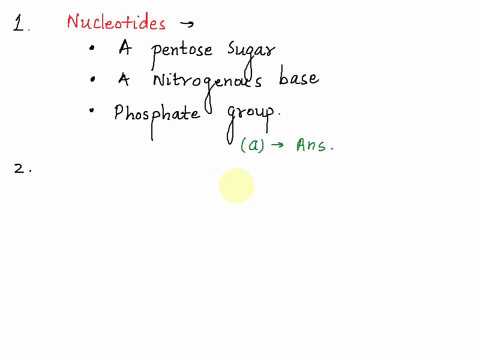 1. Nucleotides →
• A pentose sugar
• A Nitrogenous base
• Phosphate group.
(a) → Ans.
2.